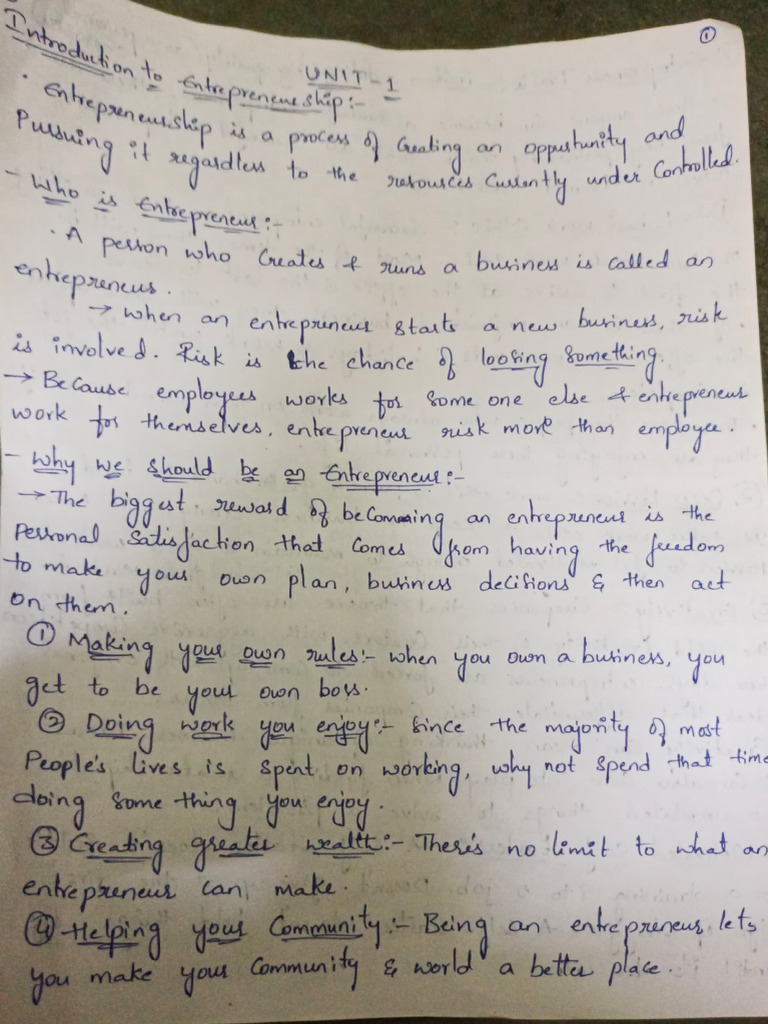 ①
UNIT-1
Introduction to Entrepreneurship:-
. Entrepreneurship is a process of Creating an oppurtunity and
Pursuing it regardless to the resources Currently under Controlled.
- Who is Entrepreneur:-
. A person who Creates & runs a business is called an
entrepreneur.
→ when an entrepreneur starts a new business, risk
is involved. Risk is the chance of loosing something.
→ Because employees works for some one else & entrepreneur
work for themselves, entrepreneur risk more than employee.
- Why we should be an Entrepreneur:-
→ The biggest reward of becoming an entrepreneur is the
Personal Satisfaction that Comes from having the freedom
to make your own plan, business decisions & then act
on them.
① Making your own rules:- when you own a business, you
get to be your own boss.
② Doing work you enjoy:- Since the majority of most
People's lives is spent on working, why not spend that time
doing some thing you enjoy.
③ Creating greater wealth:- There's no limit to what an
entrepreneur can make.
④ Helping your Community:- Being an entrepreneur lets
you make your Community & world a better place.